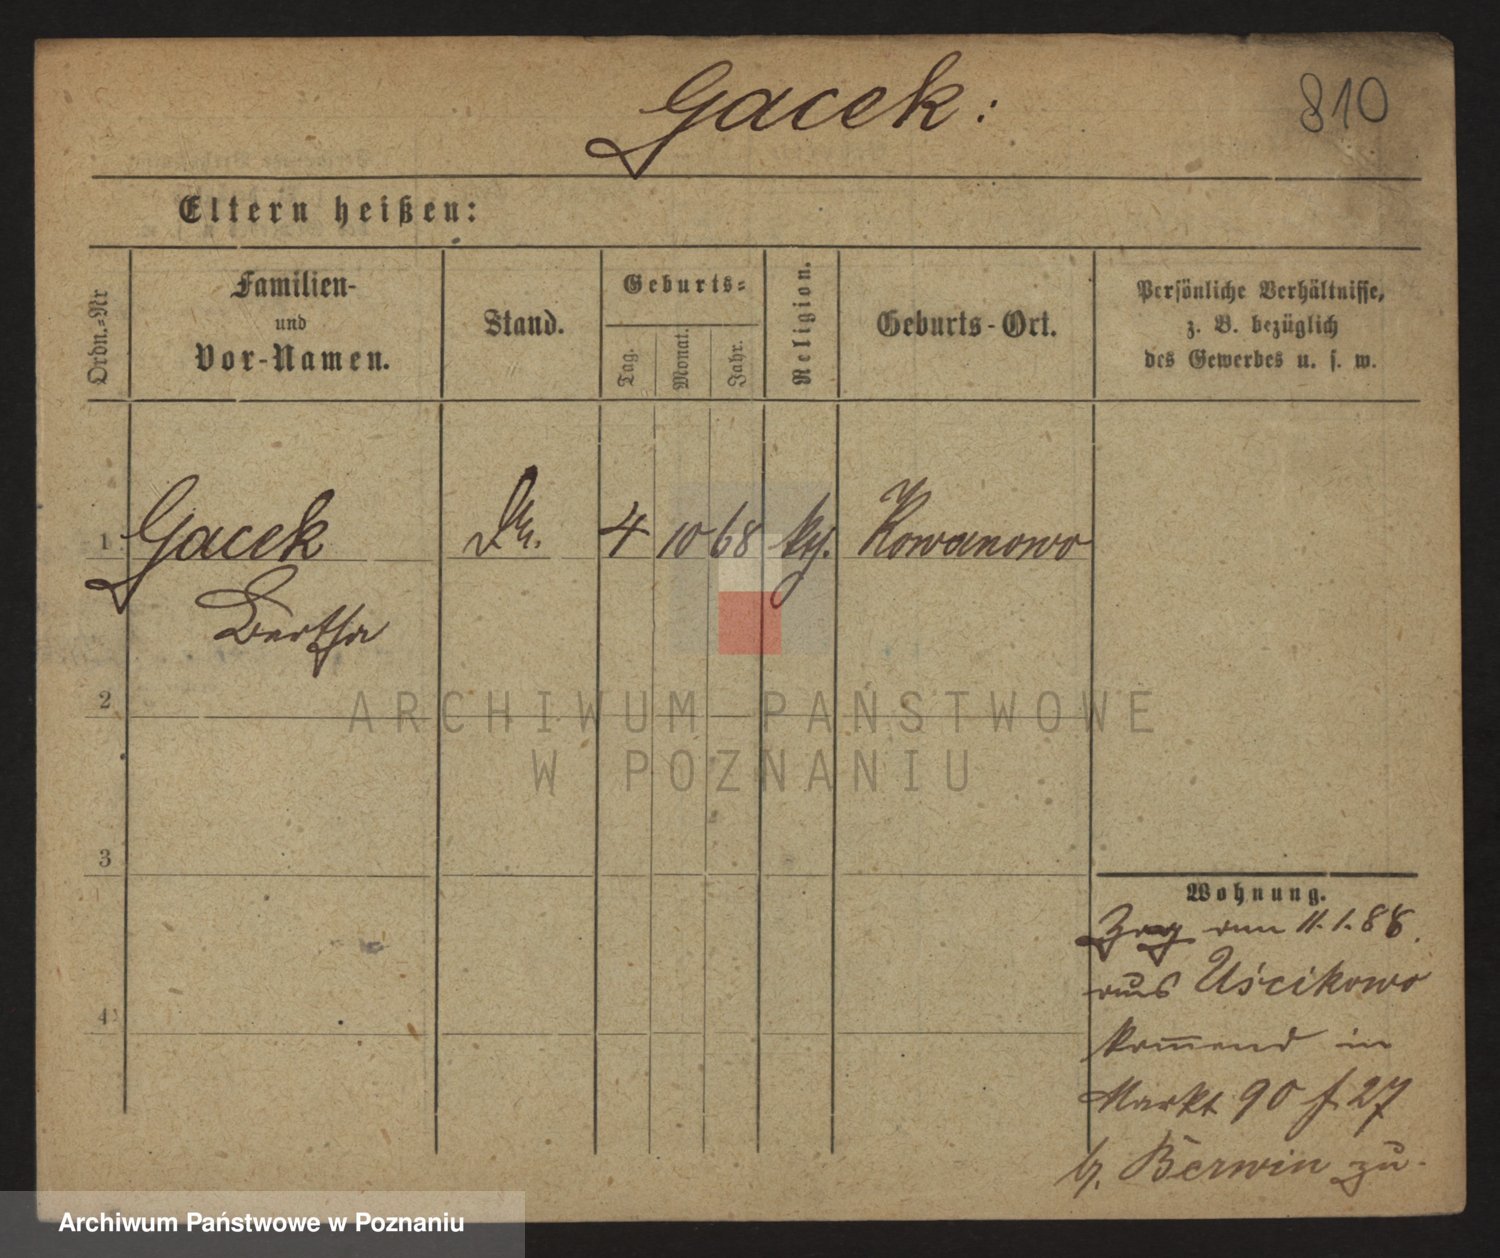 Gacek:
810
Eltern heißen:
Ordn.-Nr
Familien-
und
Vor-Namen.
Stand.
Geburts-
Tag.
Monat.
Jahr.
Religion.
Geburts-Ort.
Persönliche Verhältnisse,
z. B. bezüglich
des Gewerbes u. s. w.
1 Gacek 4 10 68 Rowanowo
Bertha
2
ARCHIWUM PAŃSTWOWE
W POZNANIU
3
Wohnung.
Zog am 11.1.88.
aus Uścikowo
kommend in
Markt 90 f. 27
b. Berwin zu.
4
Archiwum Państwowe w Poznaniu